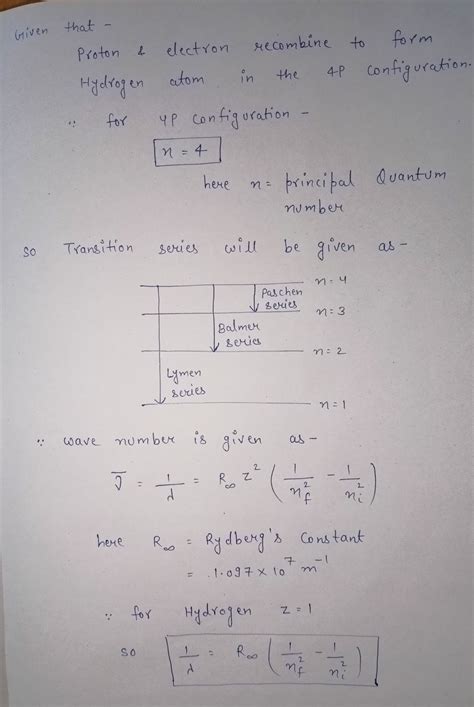 Given that -
Proton & electron recombine to form
Hydrogen atom in the 4P configuration.
∵ for 4P configuration -
n = 4
here n = principal Quantum
number
so Transition series will be given as -
n = 4
Paschen
series
n = 3
Balmer
series
n = 2
Lymen
series
n = 1
∵ wave number is given as -
ν̅ = 1/λ = R∞ z² (1/n_f² - 1/n_i²)
here R∞ = Rydberg's Constant
= 1.097 × 10⁷ m⁻¹
∵ for Hydrogen z = 1
so 1/λ = R∞ (1/n_f² - 1/n_i²)